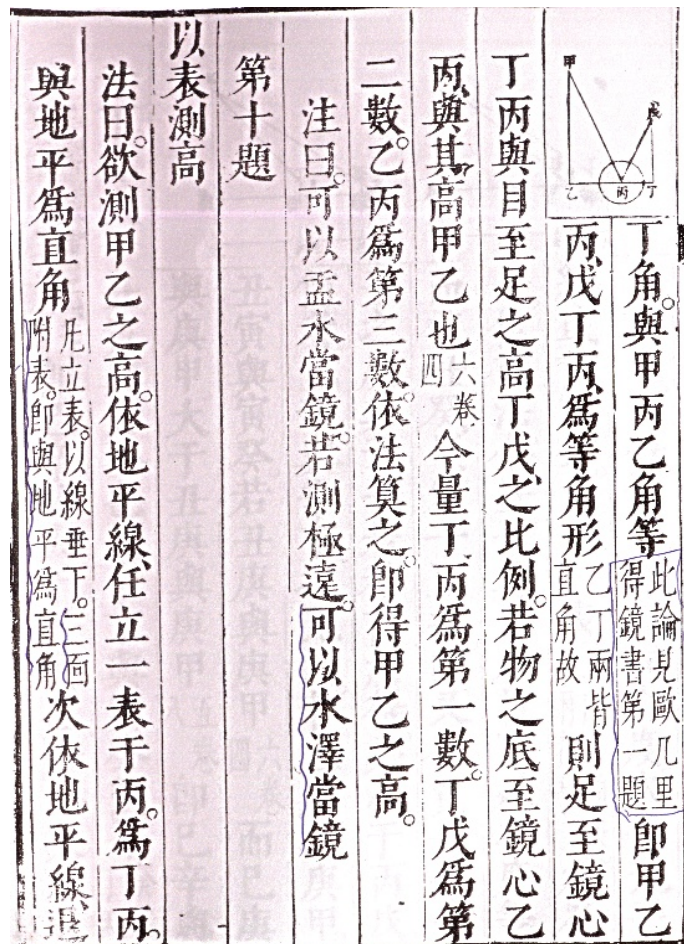 甲
戊
乙
丙
丁
丁角。與甲丙乙角等此論見歐几里得鏡書第一題卽甲乙
丙、戊丁丙、爲等角形乙丁兩皆直角故則足至鏡心
丁丙與目至足之高丁戊、之比例。若物之底至鏡心乙
丙、與其高甲乙也六卷四今量丁丙爲第一數。丁戊爲第
二數。乙丙爲第三數。依法算之。卽得甲乙之高。
注曰。可以盂水當鏡。若測極遠。可以水澤當鏡
第十題
以表測高
法曰。欲測甲乙之高。依地平線、任立一表于丙。爲丁丙。
與地平爲直角凡立表。以線垂下。三面附表。卽與地平爲直角次依地平線、退